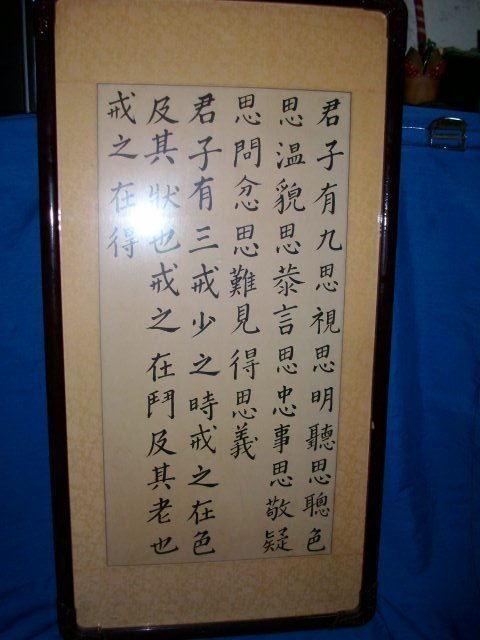 君子有九思視思明聽思聰色
思温貌思恭言思忠事思敬疑
思問忿思難見得思義
君子有三戒少之時戒之在色
及其狀也戒之在鬥及其老也
戒之在得